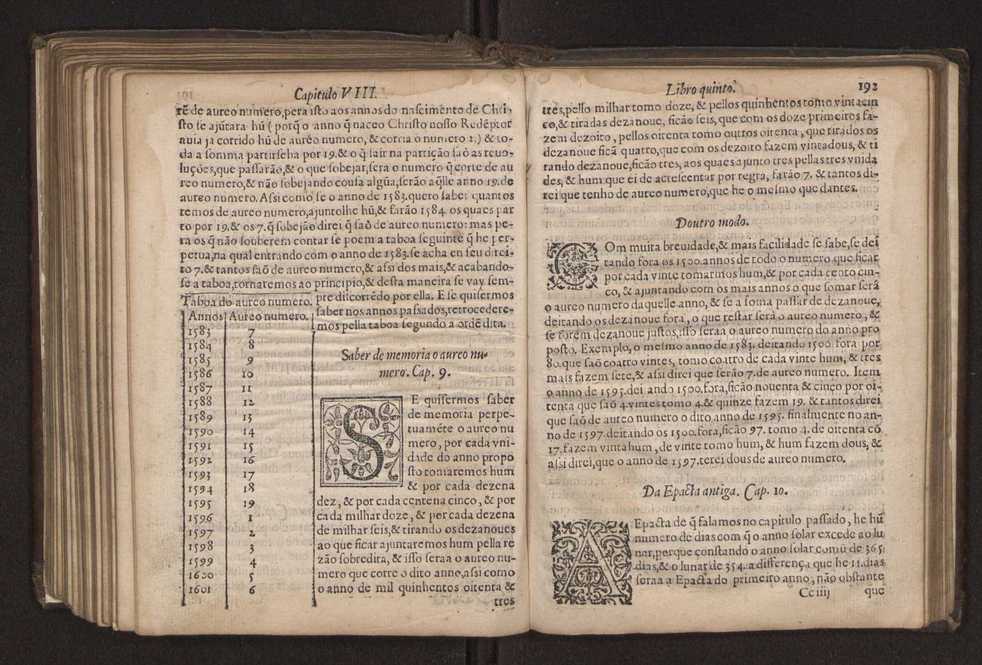 Capitulo VIII.
rẽ de aureo numero, pera isto aos annos do nascimento de Chri-
sto se ajũtara hũ (porq̃ o anno q̃ naceo Christo nosso Redẽptor
auia ja corrido hũ de aureo numero, & corria o numero 2.) & to-
da a somma partirseha por 19. & o q̃ sair na partição saõ as reuo-
luções, que passaraõ, & o que sobejar, sera o numero q̃ corre de au
reo numero, & não sobejando cousa algũa, serão aq̃lle anno 19. de
aureo numero. Assi como se o anno de 1583. quero saber quantos
temos de aureo numero, ajuntolhe hũ, & farão 1584. os quaes par
to por 19. & os 7. q̃ sobejão direi q̃ saõ de aureo numero: mas pe-
ra os q̃ não souberem contar se poem a taboa seguinte q̃ he per-
petua, na qual entrando com o anno de 1583. se acha en seu direi-
to 7. & tantos saõ de aureo numero, & assi dos mais, & acabando-
se a taboa, tornaremos ao principio, & desta maneira se vay sem-
pre discorrẽdo por ella. E se quisermos
saber nos annos passados, retrocedere-
mos pella taboa segundo a ordẽ dita.
Taboa do aureo numero.
Annos Aureo numero.
1583 7
1584 8
1585 9
1586 10
1587 11
1588 12
1589 13
1590 14
1591 15
1592 16
1593 17
1594 18
1595 19
1596 1
1597 2
1598 3
1599 4
1600 5
1601 6
Saber de memoria o aureo nu-
mero. Cap. 9.
SE quisermos saber
de memoria perpe-
tuamẽte o aureo nu
mero, por cada vni-
dade do anno propo
sto tomaremos hum
& por cada dezena
dez, & por cada centena cinco, & por
cada milhar doze, & por cada dezena
de milhar seis, & tirando os dezanoues
ao que ficar ajuntaremos hum pella re-
zão sobredita, & isso sera o aureo nu-
mero que corre o dito anno, assi como
o anno de mil quinhentos oitenta &
tres
Libro quinto. 192
tres, pello milhar tomo doze, & pellos quinhentos tomo vintacin
co, & tiradas dezanoue, ficão seis, que com os doze primeiros fa-
zem dezoito, pellos oitenta tomo outros oitenta, que tirados os
dezanoue ficã quatro, que com os dezoito fazem vintadous, & ti
rando dezanoue, ficão tres, aos quaes ajunto tres pellas tres vnida
des, & hum que ei de acrescentar por regra, farão 7. & tantos di-
rei que tenho de aureo numero, que he o mesmo que dantes.
Doutro modo.
COm muita breuidade, & mais facilidade se sabe, se dei
tando fora os 1500. annos de todo o numero que ficar
por cada vinte tomarmos hum, & por cada cento cin-
co, & ajuntando com os mais annos o que somar será
o aureo numero daquelle anno, & se a soma passar de dezanoue,
deitando os dezanoue fora, o que restar será o aureo numero, &
se forem dezanoue justos, isso seraa o aureo numero do anno pro
posto. Exemplo, o mesmo anno de 1583. deitando 1500. fora, por
80. que saõ coatro vintes, tomo coatro de cada vinte hum, & tres
mais fazem sete, & assi direi que serão 7. de aureo numero. Item
o anno de 1595. deitando 1500. fora, ficão nouenta & cinço por oi-
tenta que saõ 4. vintes tomo 4. & quinze fazem 19. & tantos direi
que saõ de aureo numero o dito anno de 1595. finalmente no an-
no de 1597. deitando os 1500. fora, ficão 97. tomo 4. de oitenta cõ
17. fazem vinta hum, de vinte tomo hum, & hum fazem dous, &
assi direi, que o anno de 1597. terei dous de aureo numero.
Da Epacta antiga. Cap. 10.
AEpacta de q̃ falamos no capitulo passado, he hũ
numero de dias com q̃ o anno solar excede ao lu
nar, porque constando o anno solar comũ de 365.
dias, & o lunar de 354. a differença que he 11. dias
seraa a Epacta do primeiro anno, não obstante
Cc iiij que